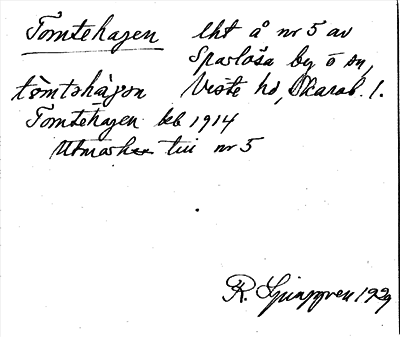 Tomtehagen lht å nr 5 av
Sparlösa by o sn,
tòmtəhàgən Viste hd, Skarab. l.
Tomtehagen leb 1914
Utmark till nr 5
R. Ljunggren 1929